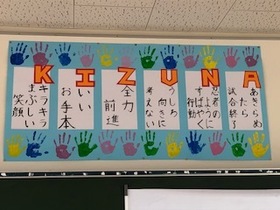 KIZUNA
キラキラ
まぶしい
笑顔
いい
お手本
全力
前進
うしろ
向きに
考えない
忍者の
ように
すばやく
行動
あきらめ
たら
試合終了